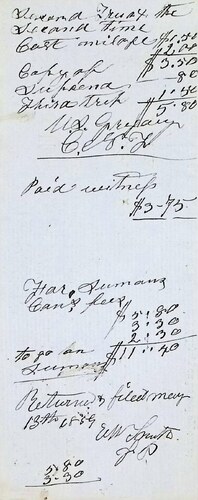 Second Truax the
Second time
Cost milage $1.50
$2.00
Copy of $3.50
Supena 80
this Trip 1.50
5.80
C. S. T.
Paid witness
$3-75
For Sumans
Cons fees
$5.80
3:30
2:30
to go on $11:40
Sumons
Return & filed may
13th 1859
J P
5.80
3.30